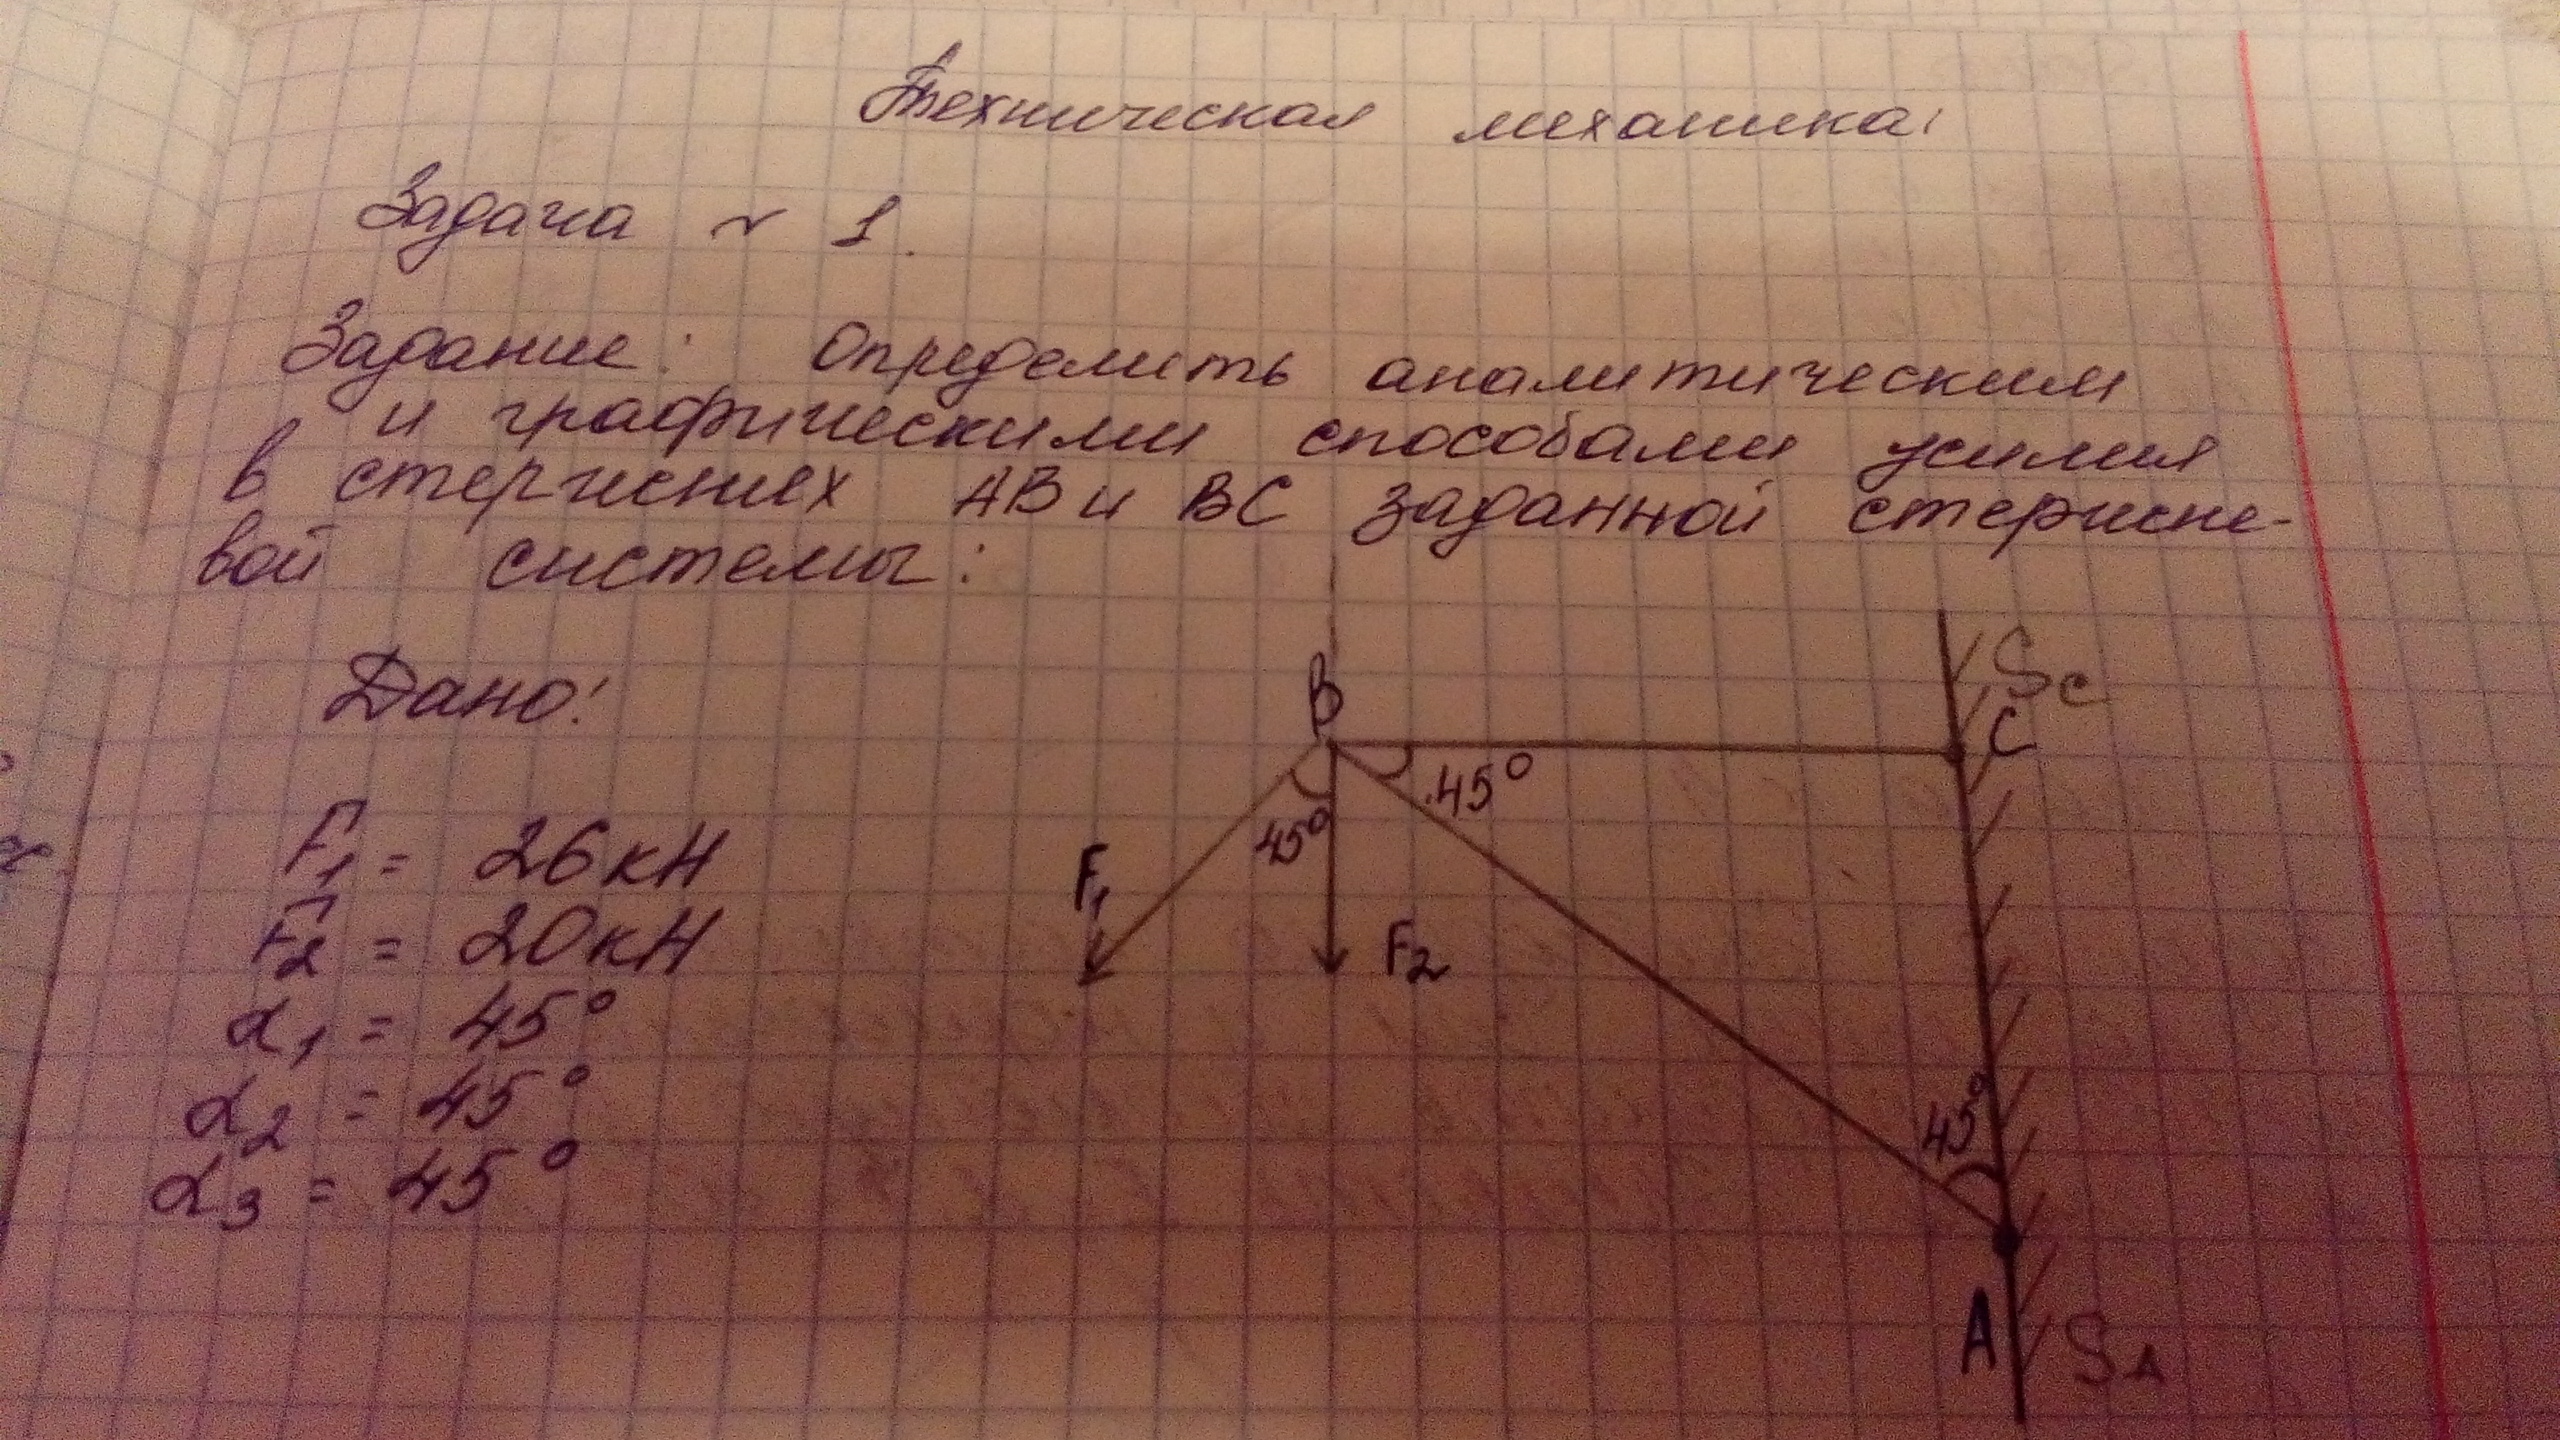 Техническая механика:
Задача N 1.
Задание: Определить аналитическим
и графическими способами усилия
в стержнях AB и BC заданной стержне-
вой системы:
Дано:
F1 = 26 кН
F2 = 20 кН
α1 = 45°
α2 = 45°
α3 = 45°
B
Sc
C
45°
45°
F1
F2
45°
A
SA